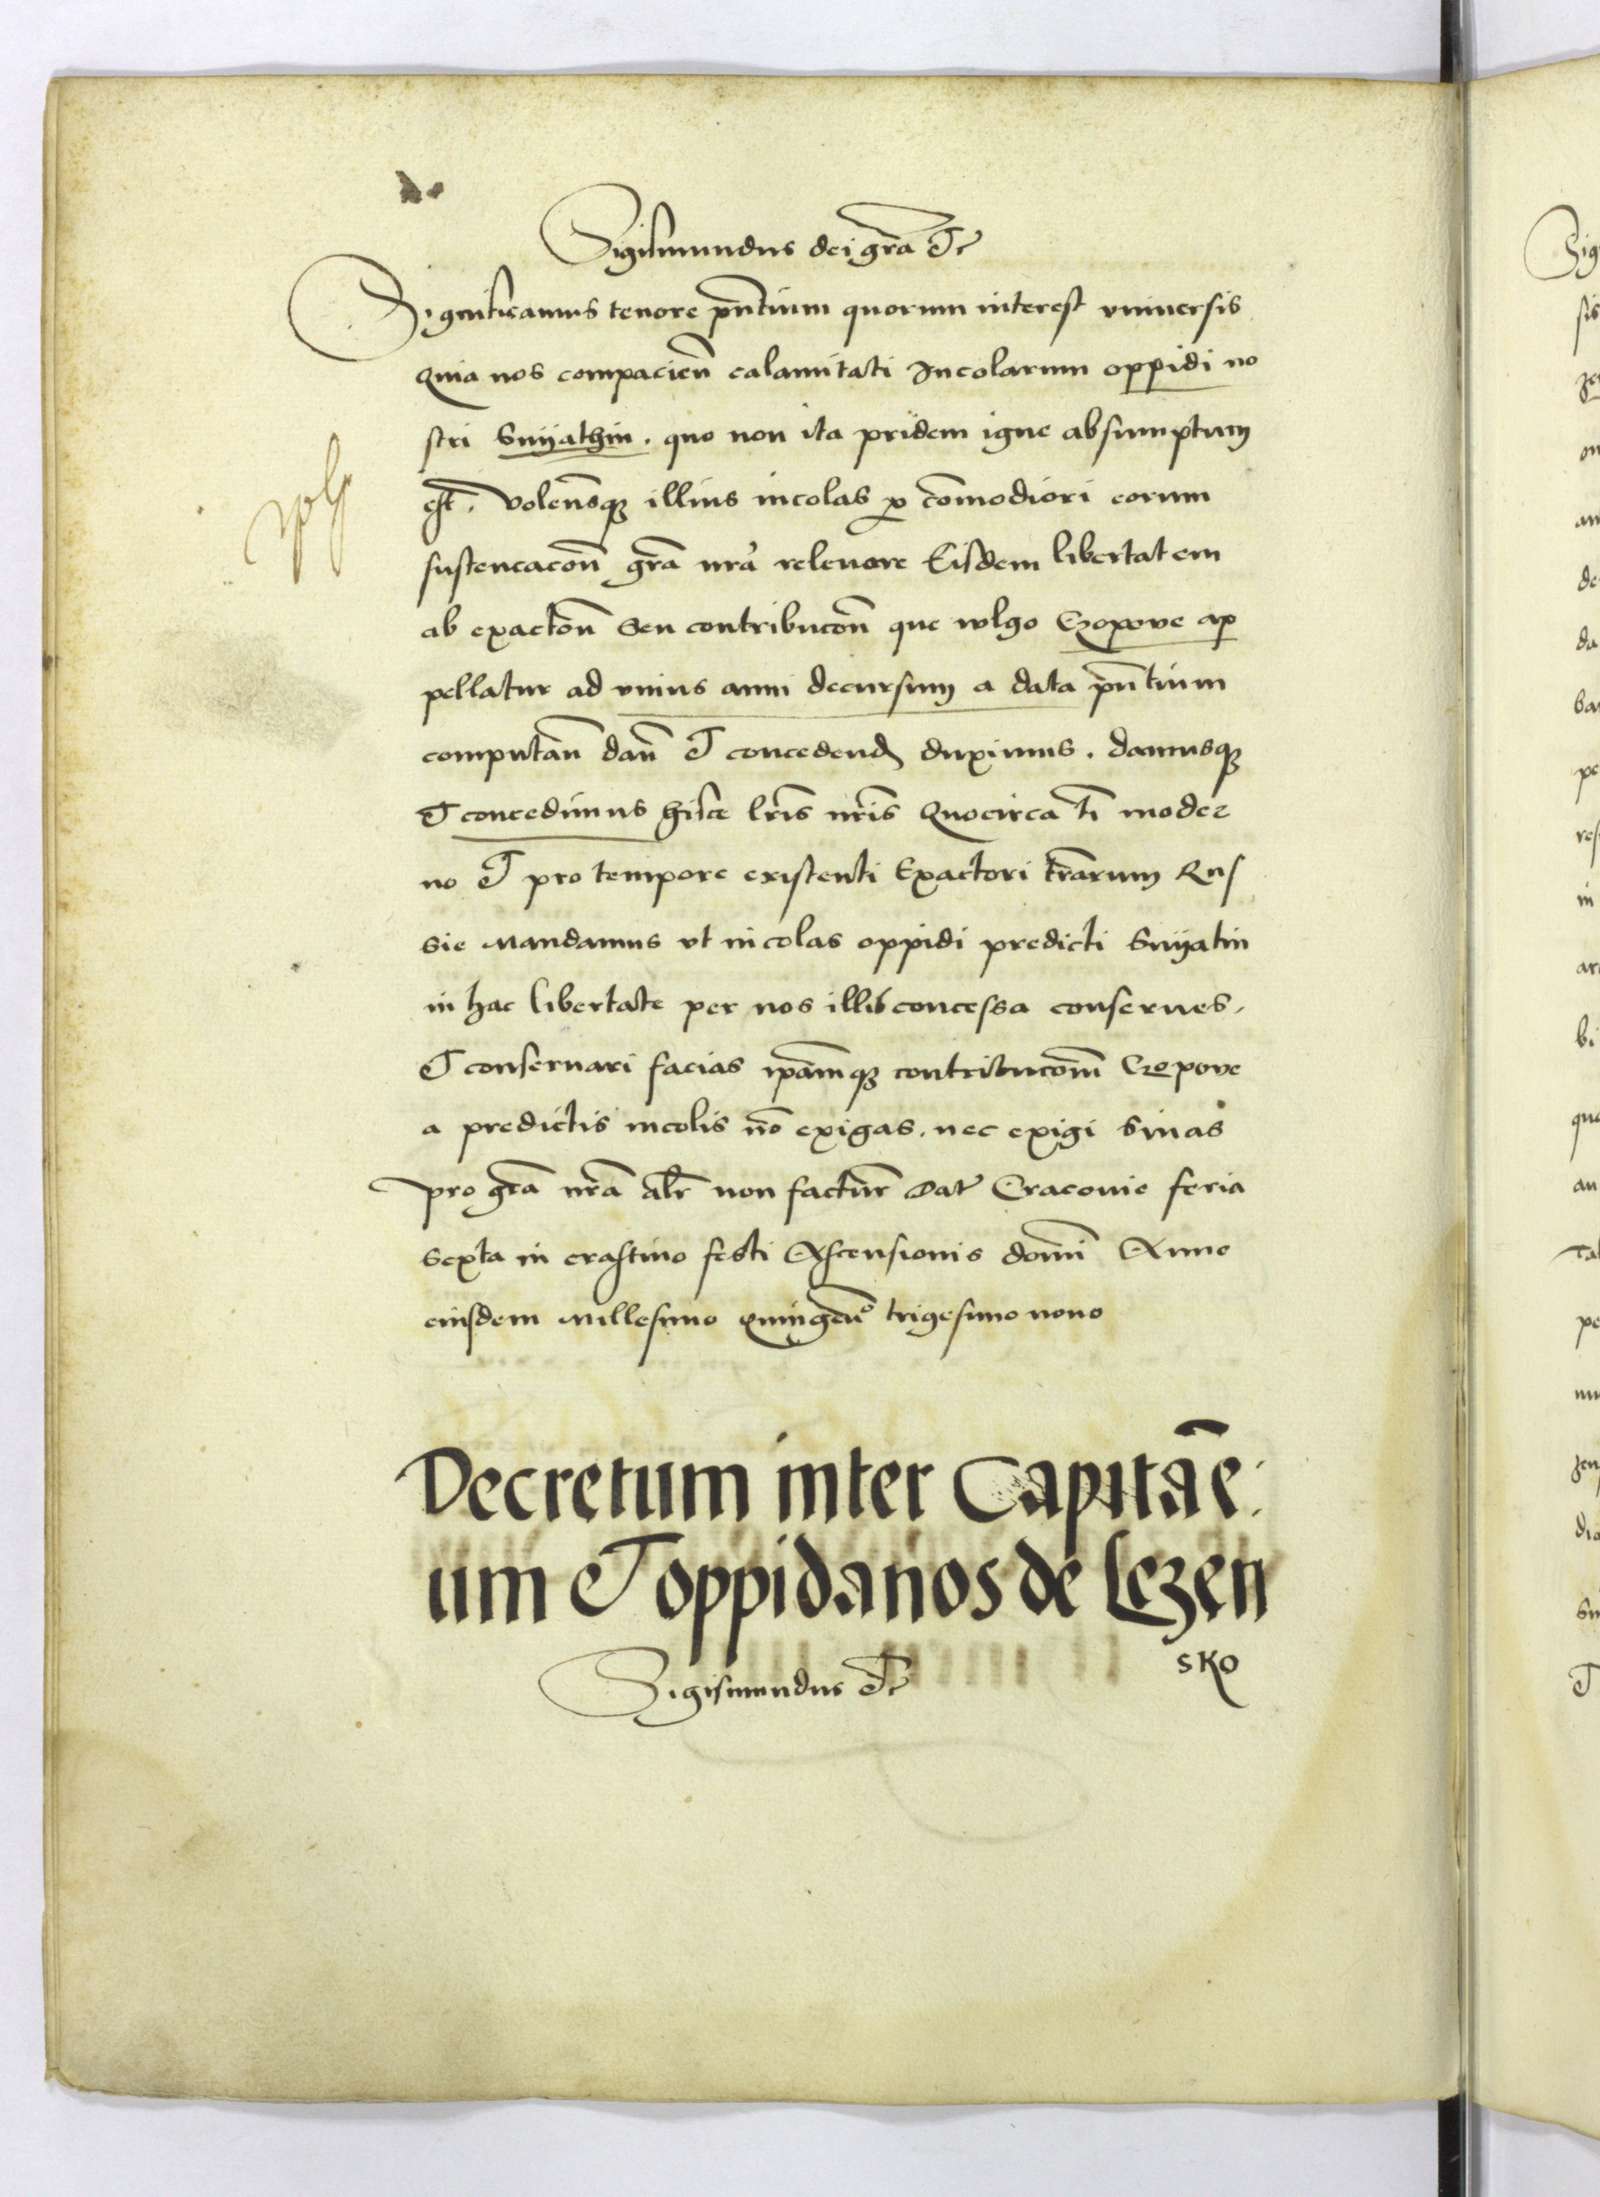 Sigismundus dei gr̃a Et͛c
Significamus tenore pñtium quorum interest vniuersis
Quia nos compacieñ calamitati Incolarum oppidi no
stri Snyathin. quo non ita pridem igne absumptum
est̃. Volens̃qꝫ illius incolas ꝓ com̃odiori eorum
sustencacoñ gr̃a nr̃a releuare Eisdem libertatem
ab exactoñ seu contribucoñ que wlgo Czopowe ap
pellatur ad vnius anni decursum a data pñtium
computañ dañ Et concedend duximus. damusqꝫ
Et concedimus hisce lr̃is nr̃is Quocirca tĩ moder
no Et pro tempore existenti Exactori tr̃arum Rus
sie Mandamus vt incolas oppidi predicti Snyatin
in hac libertate per nos illis concessa conserues.
Et conseruari facias ip̃amqꝫ contribucom̃ Czopowe
a predictis incolis nõ exigas. nec exigi sinas
pro gr̃a nr̃a alr̃ non factur̃ Dat͛ Cracouie feria
sexta in crastino festi Ascensionis domĩ Anno
eiusdem Millesimo quingeñº trigesimo nono
Decretum inter Capitãe
um Et oppidanos de Lezen
sko
Sigismundus Et͛c